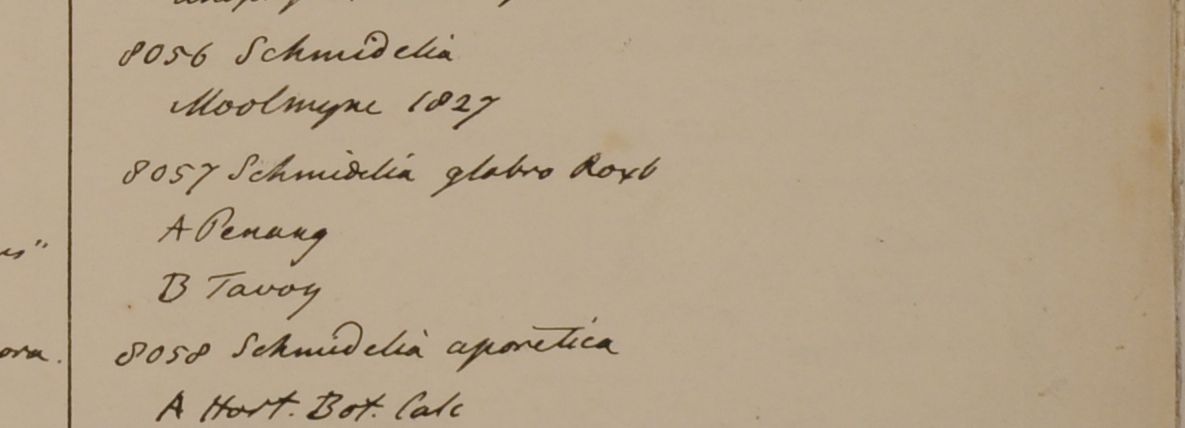 8056 Schmidelia
Moolmyne 1827
8057 Schmidelia glabro Roxb
A Penang
us"
B Tavoy
ora. 8058 Schmidelia aporetica
A Hort. Bot. Calc